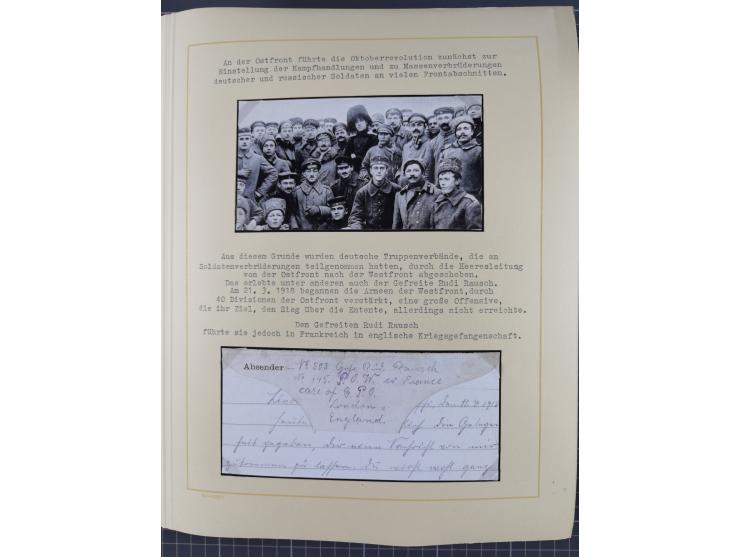 An der Ostfront führte die Oktoberrevolution zunächst zur
Einstellung der Kampfhandlungen und zu Massenverbrüderungen
deutscher und russischer Soldaten an vielen Frontabschnitten.
Aus diesem Grunde wurden deutsche Truppenverbände, die an
Soldatenverbrüderungen teilgenommen hatten, durch die Heeresleitung
von der Ostfront nach der Westfront abgeschoben.
Das erlebte unter anderen auch der Gefreite Rudi Rausch.
Am 21. 3. 1918 begannen die Armeen der Westfront,durch
40 Divisionen der Ostfront verstärkt, eine große Offensive,
die ihr Ziel, den Sieg über die Entente, allerdings nicht erreichte.
Den Gefreiten Rudi Rausch
führte sie jedoch in Frankreich in englische Kriegsgefangenschaft.
Absender Nº 803 Gefr. Rud. Rausch
Nº 145. P.O.W. in France
care of G.P.O.
London
England.
den 11. 1918
heute den Gelegen
heit gegeben, Dir neue Nachricht von mir
zukommen zu lassen. Du wirst wohl ganz